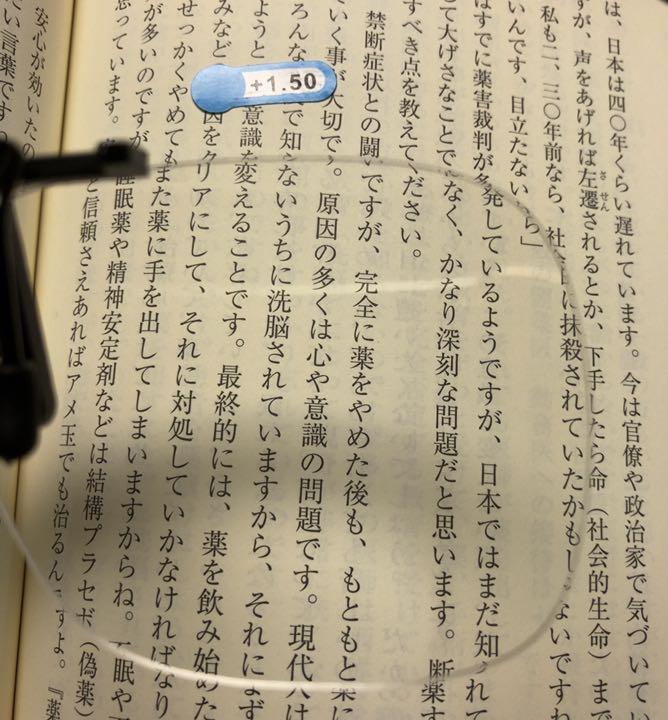 は、日本は四〇年くらい遅れています。今は官僚や政治家で気づいてい
すが、声をあげれば左遷されるとか、下手したら命（社会的生命）まで
させん
私も二、三〇年前なら、社会的に抹殺されていたかもしれないですね
いんです、目立たないから」
はすでに薬害裁判が多発しているようですが、日本ではまだ知られて
して大げさなことでなく、かなり深刻な問題だと思います。断薬す
すべき点を教えてください。
禁断症状との闘いですが、完全に薬をやめた後も、もともと薬に
ていく事が大切です。原因の多くは心や意識の問題です。現代人は
ろんな で知らないうちに洗脳されていますから、それにまず
ようと 意識を変えることです。最終的には、薬を飲み始めた
みなど 因をクリアにして、それに対処していかなければなり
せっかくやめてもまた薬に手を出してしまいますからね。不眠や
が多いのですが 睡眠薬や精神安定剤などは結構プラセボ（偽薬）
思っています。 と信頼さえあればアメ玉でも治るんですよ。『薬
安心が効いたの
たい言葉です
+1.50